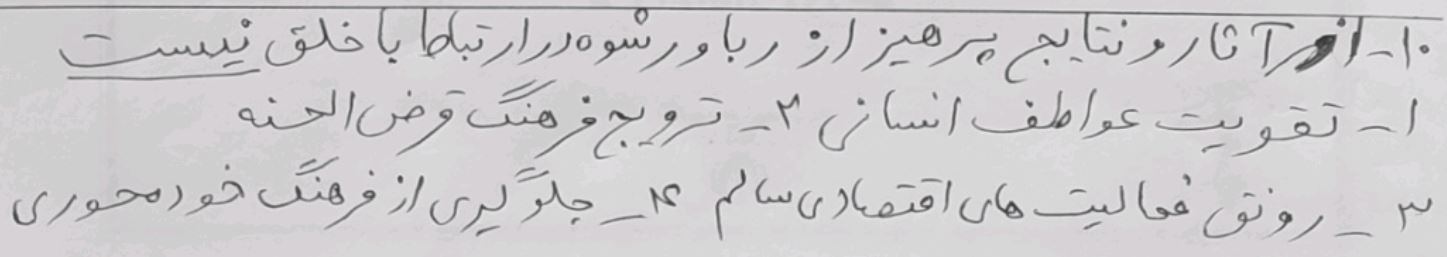 ۱۰- از آثار و نتایج پرهیز از ربا و رشوه در ارتباط با خلق نیست
۱- تقویت عواطف انسانی ۲- ترویج فرهنگ قرض الحسنه
۳- رونق فعالیت های اقتصادی سالم ۴- جلوگیری از فرهنگ خودمحوری